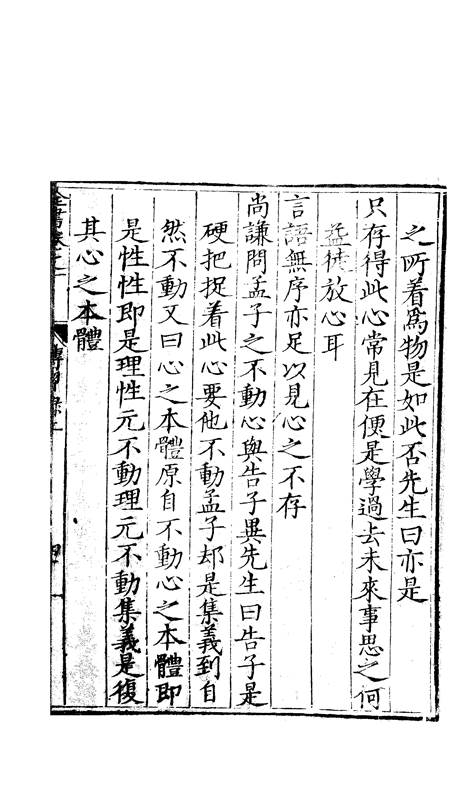 之所着爲物是如此否先生曰亦是
只存得此心常見在便是學過去未來事思之何
益徒放心耳
言語無序亦足以見心之不存
尚謙問孟子之不動心與告子異先生曰告子是
硬把捉着此心要他不動孟子却是集義到自
然不動又曰心之本體原自不動心之本體即
是性性即是理性元不動理元不動集義是復
其心之本體
全書卷之一
傳習錄上